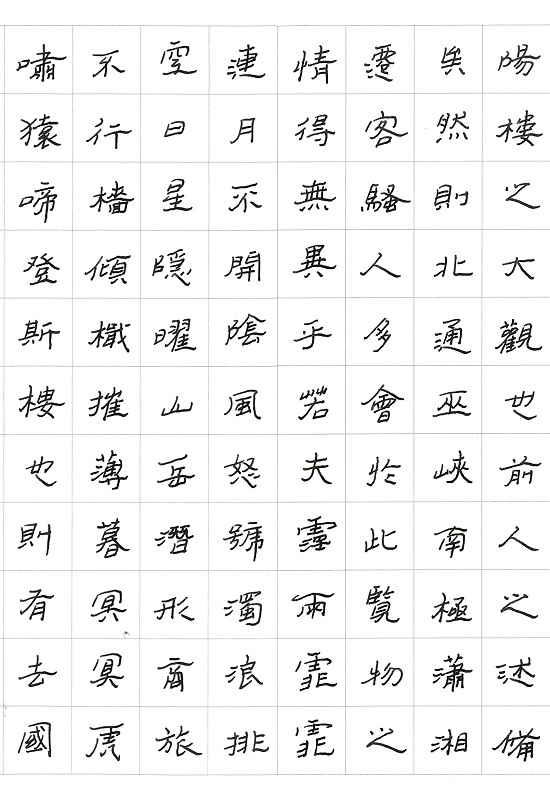 陽樓之大觀也前人之述備
矣然則北通巫峽南極瀟湘
遷客騷人多會於此覽物之
情得無異乎若夫霪雨霏霏
連月不開陰風怒號濁浪排
空日星隱曜山岳潛形商旅
不行檣傾檝摧薄暮冥冥虎
嘯猿啼登斯樓也則有去國